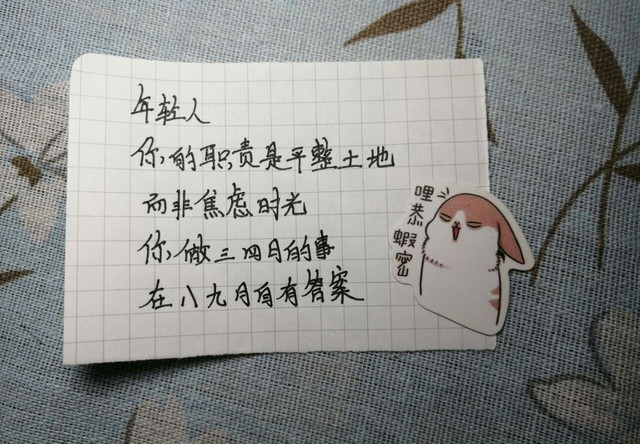 年轻人
你的职责是平整土地
而非焦虑时光
你做三四月的事
在八九月自有答案
哩恭蝦密